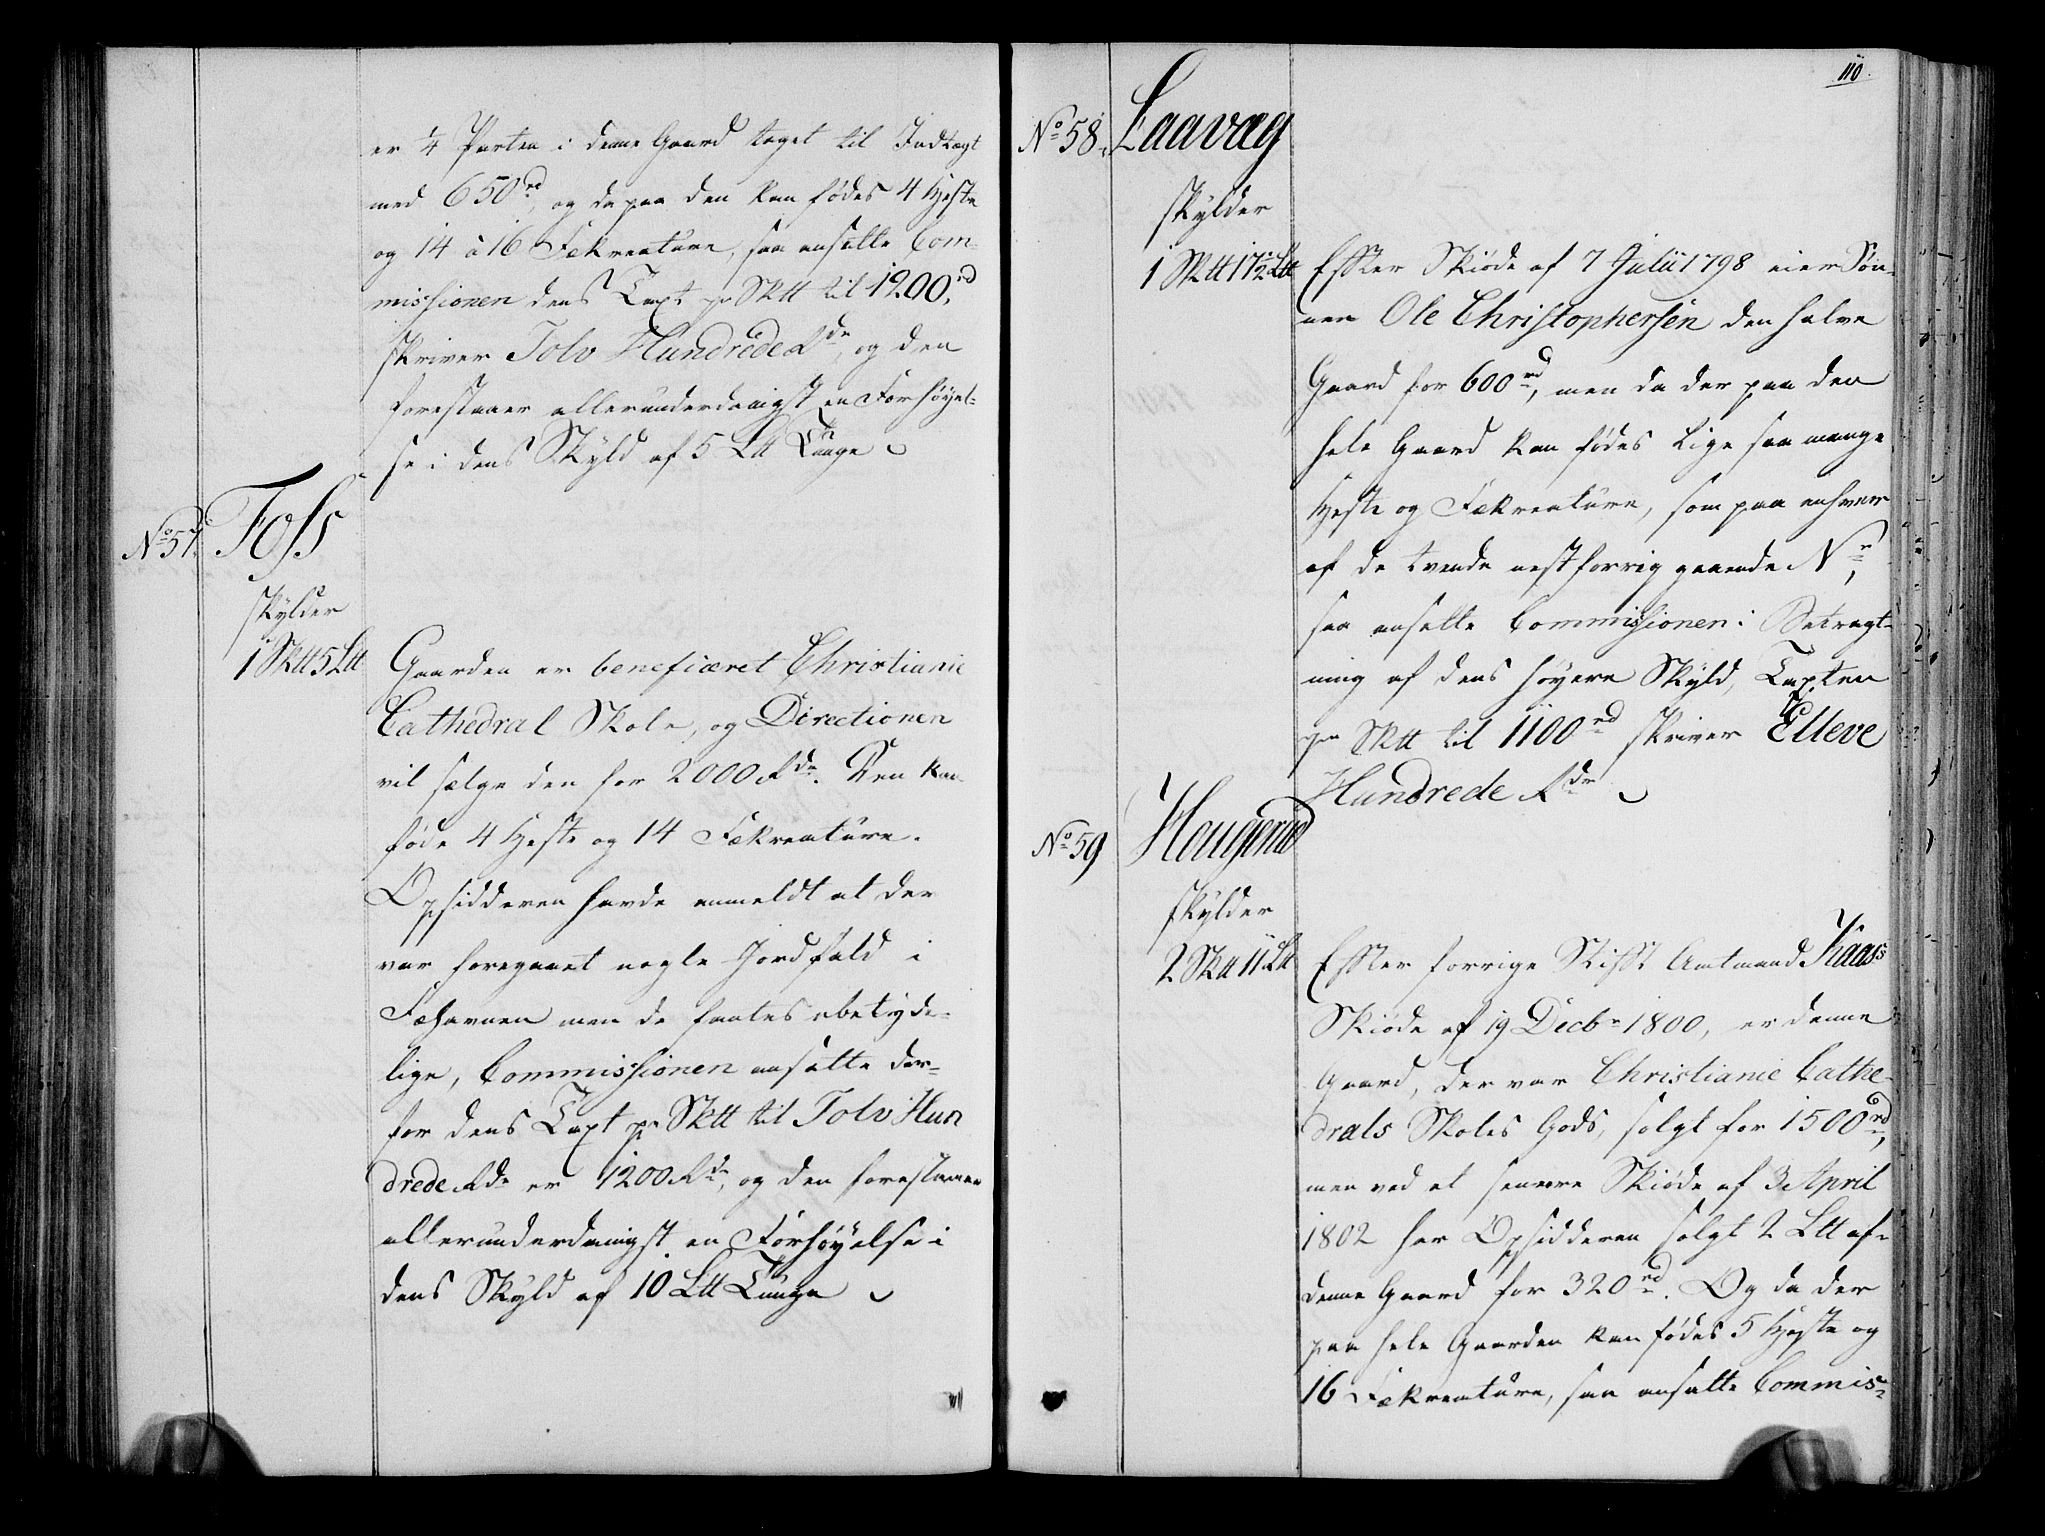 er 4 Parten i denne Gaard taget til Indtægt
med 650rd, og da paa den kan fødes 4 Heste
og 14 à 16 Fækreature, saa ansatte Com-
missionen dens Taxt pr Sktt til 1200rd,
skriver Tolv Hundrede Rdr, og den
forestaaer allerunderdanigst en Forhøyel-
se i dens Skyld af 5 Ltt Tunge
No 57. Foss
skylder
1 Sktt 5 Ltt
Gaarden er beneficeret Christiania
Cathedral Skole, og Directionen
vil sælge den for 2000 Rdr. Den kan
føde 4 Heste og 14 Fækreature.
Opsidderen havde anmeldt at der
var foregaaet nogle Jordfald i
Fæhavnen men de fantes ubetyde-
lige, Commissionen ansatte der-
for dens Taxt pr Sktt til Tolv Hun
drede Rdr er 1200 Rdr, og den forestaaer
allerunderdanigst en Forhøyelse i
dens Skyld af 10 Ltt Tunge
110.
No 58. Laavæg
skylder
1 Sktt 17½ Ltt
Efter Skiøde af 7 Julii 1798 eier Søn-
nen Ole Christophersen den halve
Gaard for 600rd, men da der paa den
hele Gaard kan fødes lige saa mange
Heste og Fækreature, som paa enhver
af de tvende nestforriggaaende Nr,
saa ansatte Commissionen i Betragt-
ning af dens høyere Skyld, Taxten
pr Sktt til 1100rd skriver Elleve
Hundrede Rdr
No 59 Hougerud
skylder
2 Sktt 11 Ltt
Efter forrige Stift Amtmand Kaas's
Skiøde af 19 Decbr 1800, er denne
Gaard, der var Christiania Cathe-
drals Skoles Gods, solgt for 1500rd,
men ved et senere Skiøde af 3 April
1802 har Opsidderen solgt 2 Ltt af
denne Gaard for 320rd. Og da der
paa hele Gaarden kan fødes 5 Heste og
16 Fækreature, saa ansatte Commis-